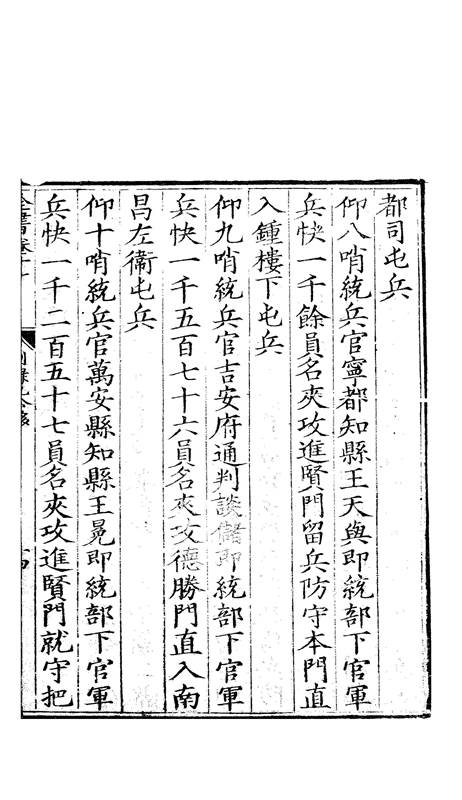 都司屯兵
仰八哨統兵官寧都知縣王天與即統部下官軍
兵快一千餘員名夾攻進賢門留兵防守本門直
入鍾樓下屯兵
仰九哨統兵官吉安府通判談儲即統部下官軍
兵快一千五百七十六員名夾攻德勝門直入南
昌左衞屯兵
仰十哨統兵官萬安縣知縣王冕即統部下官軍
兵快一千二百五十七員名夾攻進賢門就守把